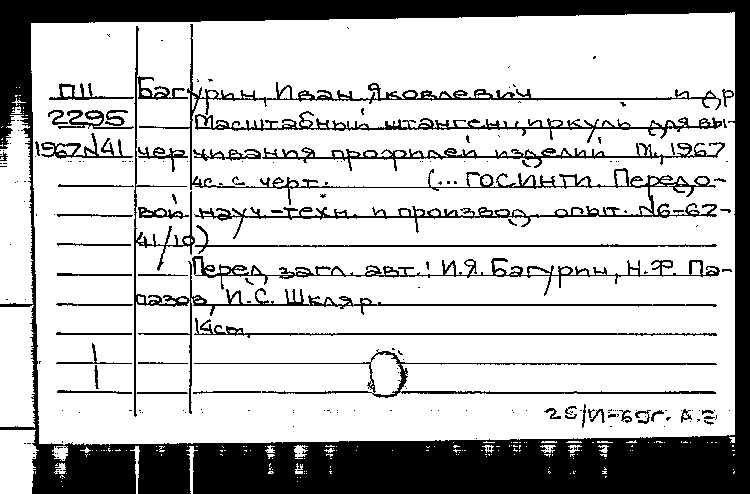 П11 Багурин, Иван Яковлевич и др
2295 Масштабный штангенциркуль для вы-
1967 №41 черчивания профилей изделий М., 1967
4с. с черт. (... ГОСИНТИ. Передо-
вой науч.-техн. и производ. опыт. №6-67-
41/10)
Перед загл. авт.: И.Я. Багурин, Н.Ф. Па-
пазов, И.С. Шкляр.
14см.
25/VI-69г. А.З